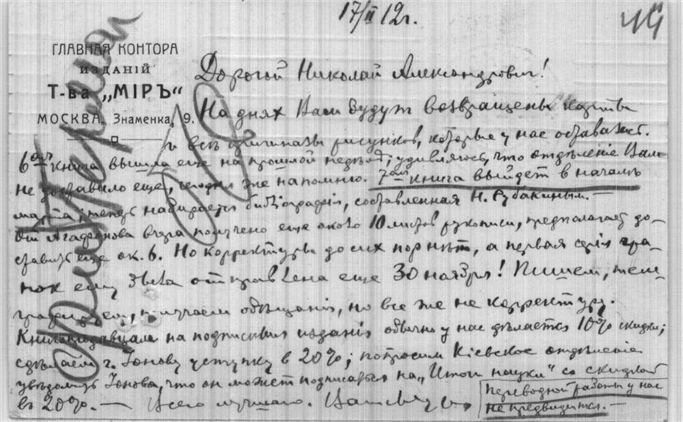 17/II 12 г.
44
ГЛАВНАЯ КОНТОРА
ИЗДАНІЙ
Т-ва „МІРЪ“
МОСКВА, Знаменка, 9.
Дорогой Николай Александрович!
На днях Вам будут возвращены карты
и все оригиналы рисунков, которые у нас
6ая книга вышла еще на прошлой неделѣ, удивляюсь, что отдѣленіе Вам
не доставило еще, сегодня же напомню. 7ая книга выйдет в началѣ
марта, теперь набирается библіографія, составленная Н. Рубакиным. —
От Агафонова вчера получено еще около 10 листов рукописи, предполагает до-
ставить еще ок. 6. Но корректуры до сих пор нѣт, а первая серія гра-
нок ему была отправлена еще 30 ноября! Пишем, теле-
графируем, получаем обѣщанія, но все же не корректуру.
Книгопродавцам на подписныя изданія обычно у нас дѣлается 10% скидки;
сдѣлаем г. Іонову уступку в 20%; попросим Кіевское отдѣленіе
увѣдомить Іонова, что он может подписаться на „Итоги науки“ со скидкой
в 20%. — Всего лучшаго. Ваш
Переводной работы у нас
не предвидится. —